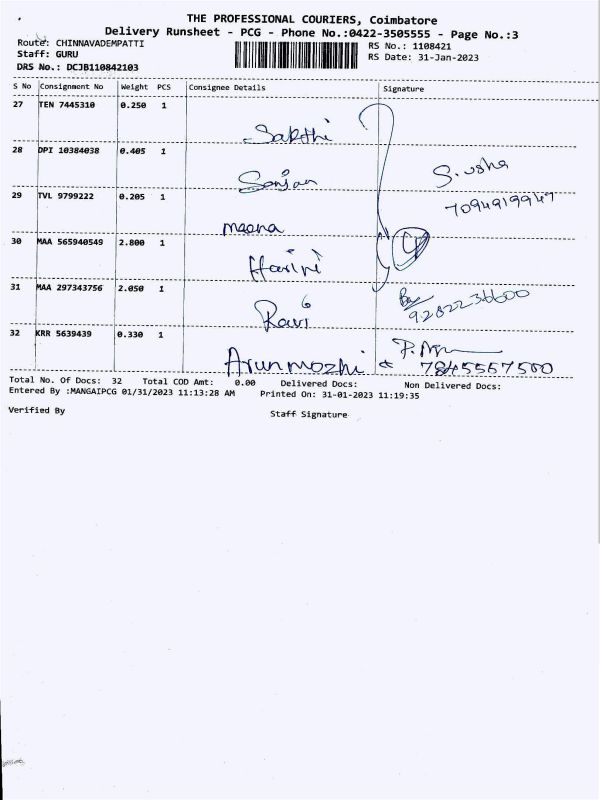 THE PROFESSIONAL COURIERS, Coimbatore
Delivery Runsheet - PCG - Phone No.:0422-3505555 - Page No.:3
Route: CHINNAVADEMPATTI
RS No.: 1108421
Staff: GURU
RS Date: 31-Jan-2023
DRS No.: DCJB110842103
S No Consignment No Weight PCS Consignee Details Signature
27 TEN 7445310 0.250 1
Sakthi
28 DPI 10384038 0.405 1
Sanjan S. usha
29 TVL 9799222 0.205 1 7094919947
meena
30 MAA 565940549 2.800 1
Harini
31 MAA 297343756 2.050 1
Ravi 9282236600
32 KRR 5639439 0.330 1
Arunmozhi 7845557500
Total No. Of Docs: 32 Total COD Amt: 0.00 Delivered Docs: Non Delivered Docs:
Entered By :MANGAIPCG 01/31/2023 11:13:28 AM Printed On: 31-01-2023 11:19:35
Verified By Staff Signature